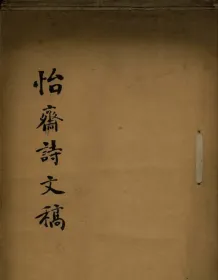 怡齋詩文稿